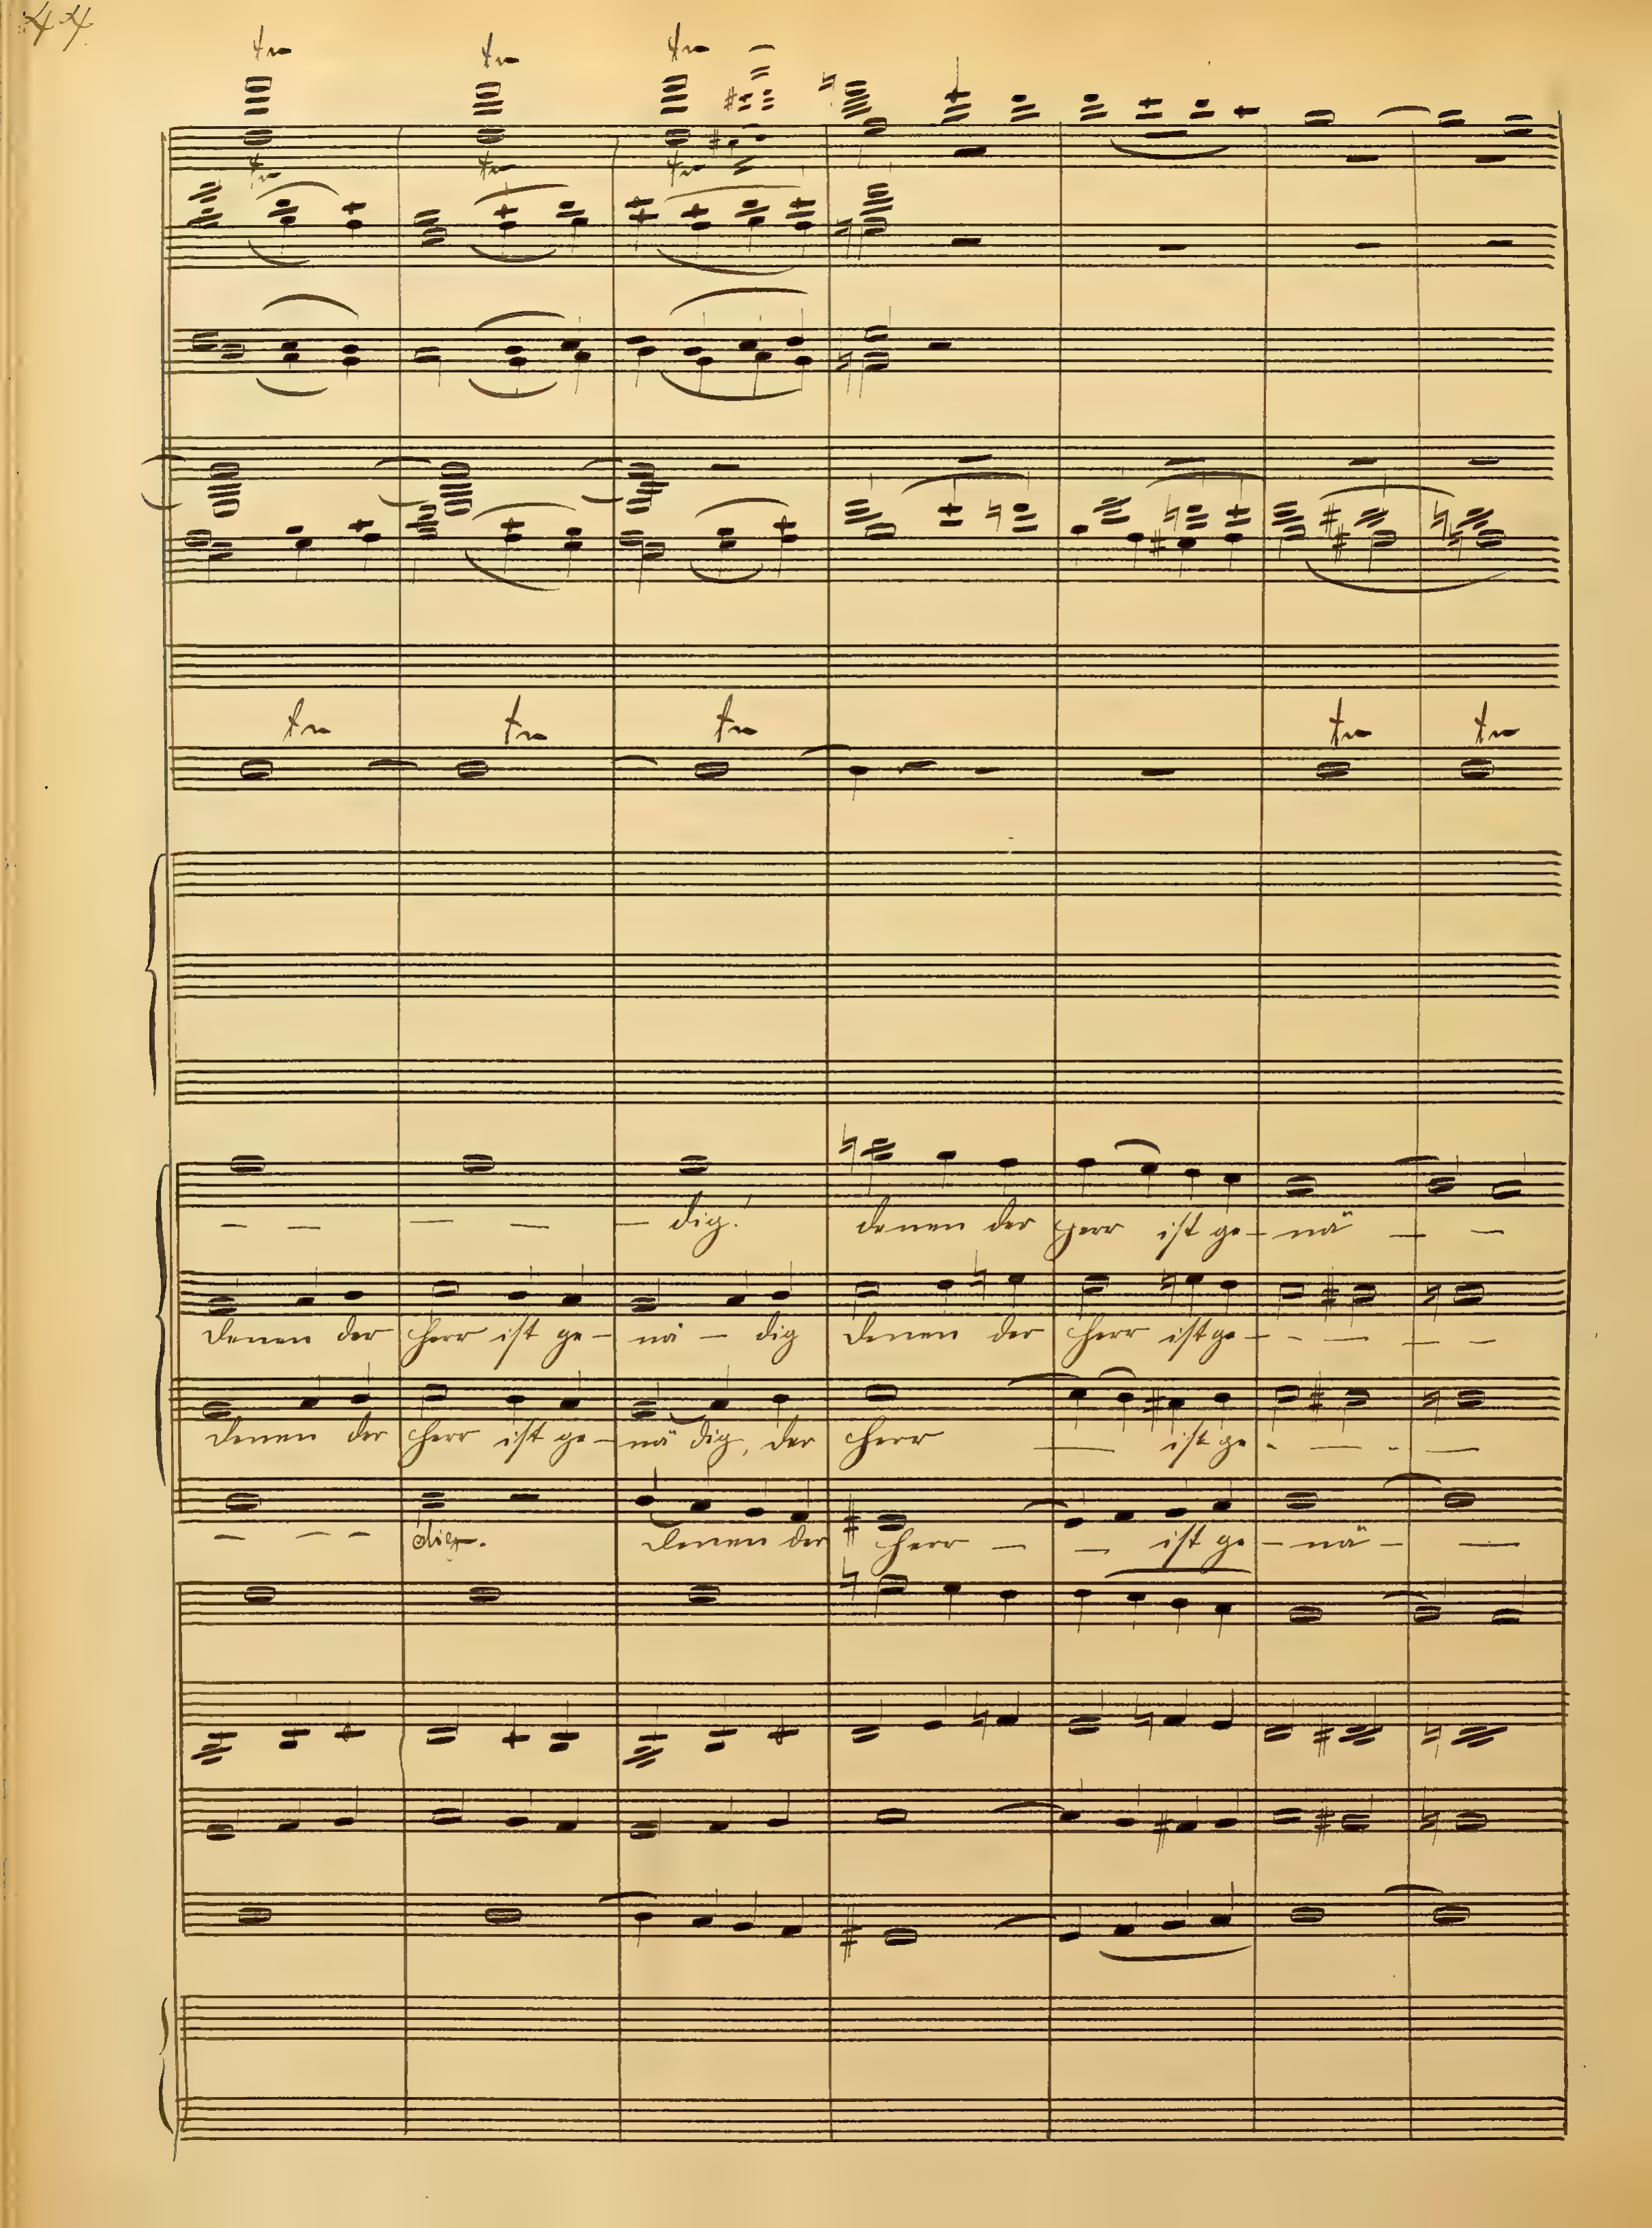 44
tr tr tr
tr tr tr
tr tr tr tr tr
– – – – – dig! denen der Herr ist ge – nä – –
denen der Herr ist ge – nä – dig denen der Herr ist ge – – – – –
denen der Herr ist ge – nä dig, der Herr — ist ge - — - —
– – – dig. denen der Herr – – ist ge – nä – —